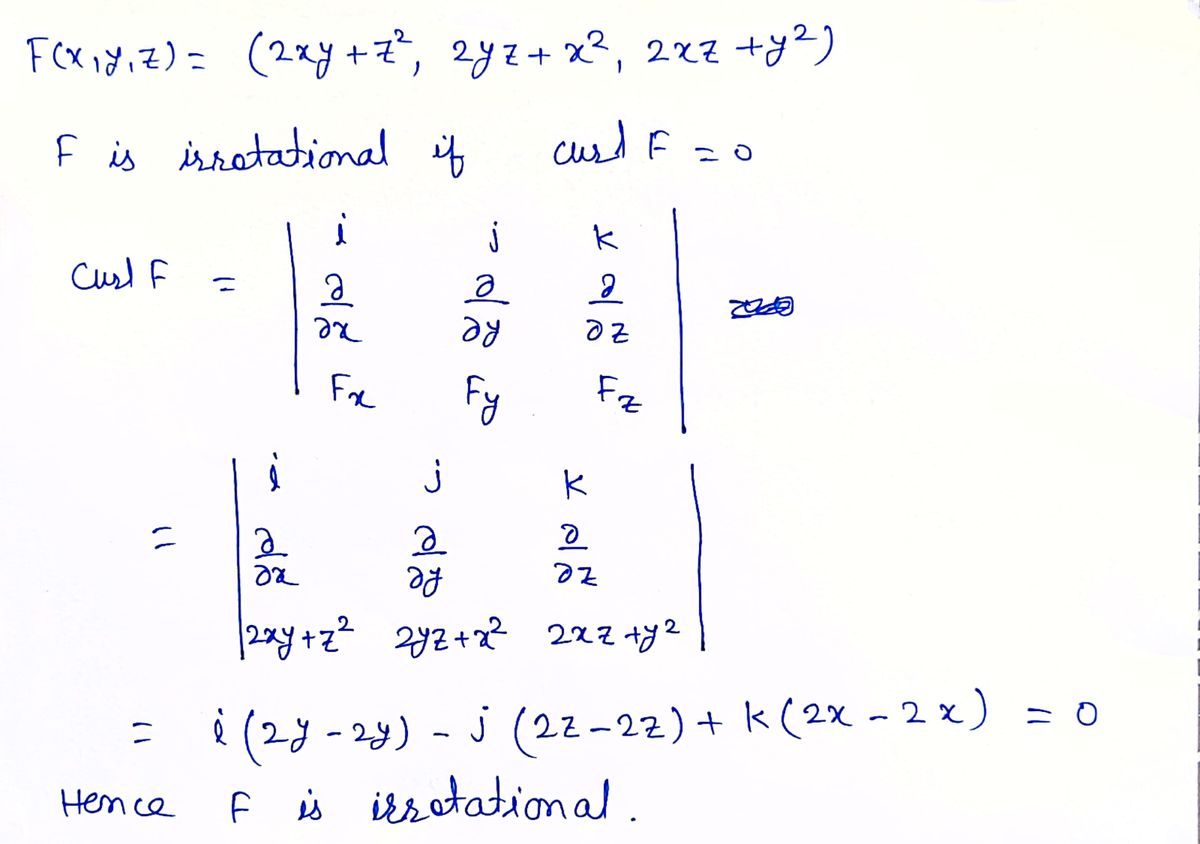 F(x,y,z) = (2xy + z², 2yz + x², 2xz + y²)
F is irrotational if curl F = 0
Curl F = | i j k |
| ∂/∂x ∂/∂y ∂/∂z |
| Fx Fy Fz |
= | i j k |
| ∂/∂x ∂/∂y ∂/∂z |
| 2xy + z² 2yz + x² 2xz + y² |
= i (2y - 2y) - j (2z - 2z) + k (2x - 2x) = 0
Hence F is irrotational.